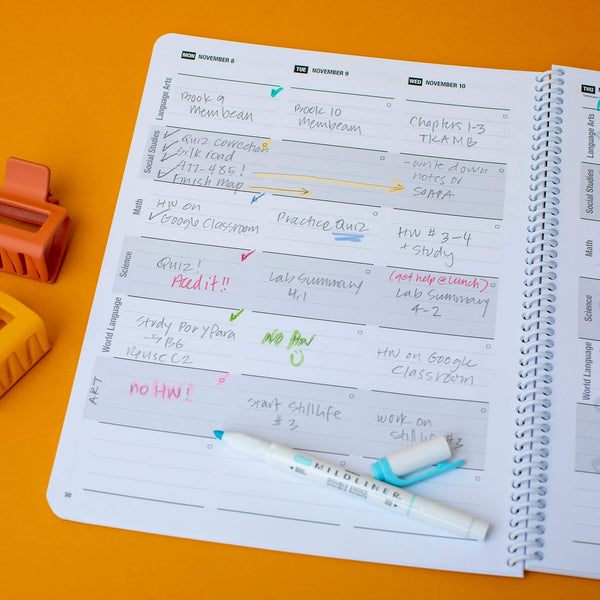 MON NOVEMBER 8
TUE NOVEMBER 9
WED NOVEMBER 10
THU
Language Arts
Book 9
Membean
Book 10
Membean
Chapters 1-3
TKAMB
Language Arts
Social Studies
Quiz correction
Silk road
477-485!
Finish map
-write down
notes or
SOAPA
Social Studies
Math
HW on
Google Classroom
Practice Quiz
HW # 3-4
+ Study
Math
Science
Quiz!
Aced it!!
Lab Summary
4.1
(got help @ lunch)
Lab Summary
4-2
Science
World Language
Study Por y Para
→ B6
Reuse C2
no HW
HW on Google
Classroom
World Language
ART
no HW!
start still life
#3
work on
still life #3
MILDLINER
30